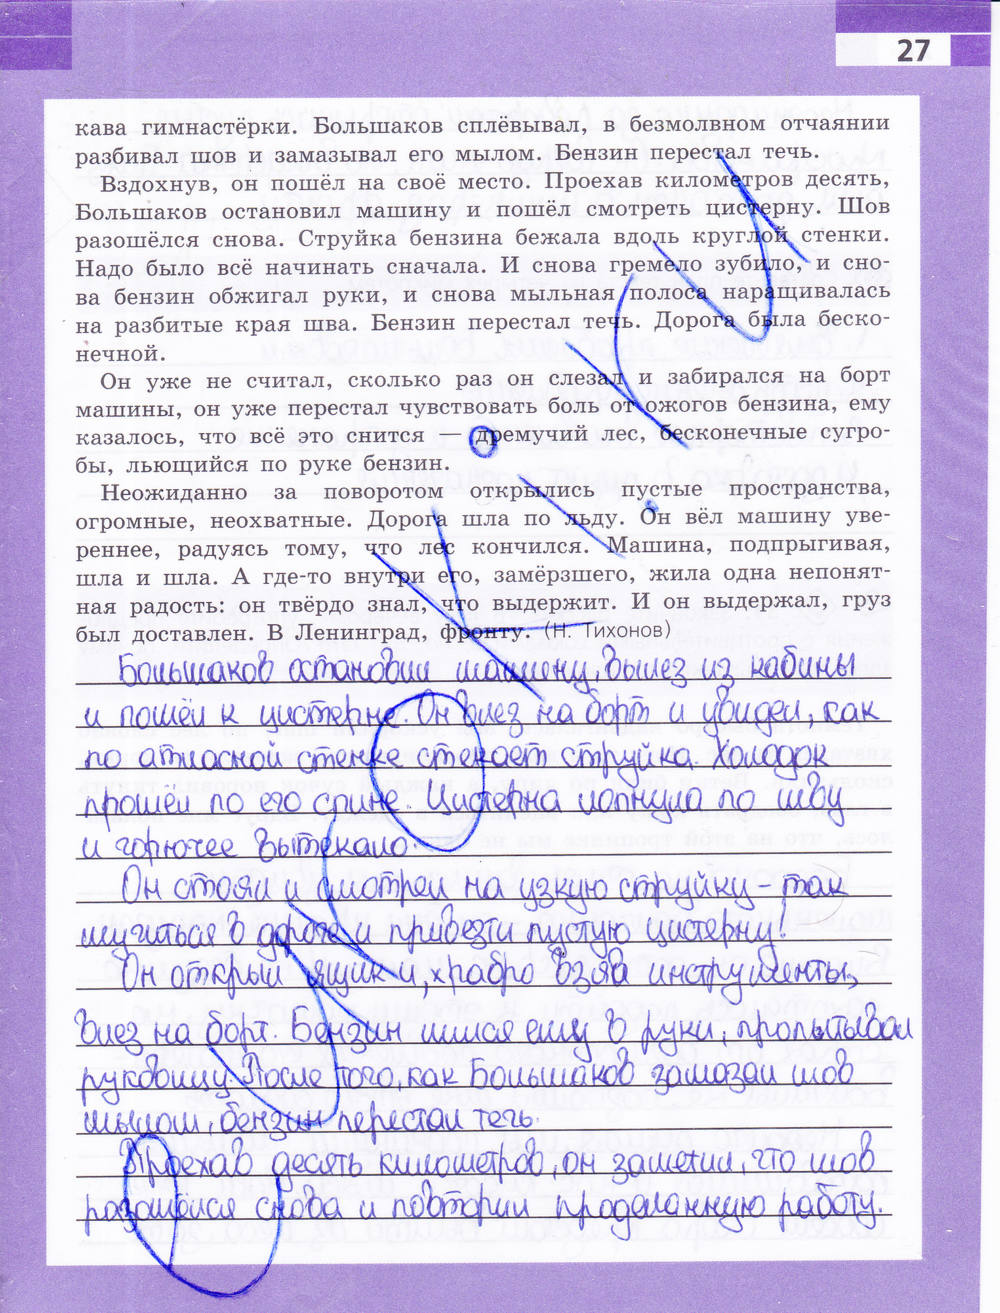 27
кава гимнастёрки. Большаков сплёвывал, в безмолвном отчаянии
разбивал шов и замазывал его мылом. Бензин перестал течь.
Вздохнув, он пошёл на своё место. Проехав километров десять,
Большаков остановил машину и пошёл смотреть цистерну. Шов
разошёлся снова. Струйка бензина бежала вдоль круглой стенки.
Надо было всё начинать сначала. И снова гремело зубило, и сно-
ва бензин обжигал руки, и снова мыльная полоса наращивалась
на разбитые края шва. Бензин перестал течь. Дорога была беско-
нечной.
Он уже не считал, сколько раз он слезал и забирался на борт
машины, он уже перестал чувствовать боль от ожогов бензина, ему
казалось, что всё это снится — дремучий лес, бесконечные сугро-
бы, льющийся по руке бензин.
Неожиданно за поворотом открылись пустые пространства,
огромные, неохватные. Дорога шла по льду. Он вёл машину уве-
реннее, радуясь тому, что лес кончился. Машина, подпрыгивая,
шла и шла. А где-то внутри его, замёрзшего, жила одна непонят-
ная радость: он твёрдо знал, что выдержит. И он выдержал, груз
был доставлен. В Ленинград, фронту. (Н. Тихонов)
Большаков остановил машину, вылез из кабины
и пошёл к цистерне. Он влез на борт и увидел, как
по атласной стенке стекает струйка. Холодок
прошёл по его спине. Цистерна лопнула по шву
и горючее вытекало.
Он стоял и смотрел на узкую струйку – так
мучиться в дороге и привезти пустую цистерну!
Он открыл ящик и, храбро взяв инструменты,
влез на борт. Бензин лился ему в руки, пропитывал
рукавицу. После того, как Большаков замазал шов
мылом, бензин перестал течь.
Проехав десять километров, он заметил, что шов
разошёлся снова и повторил проделанную работу.